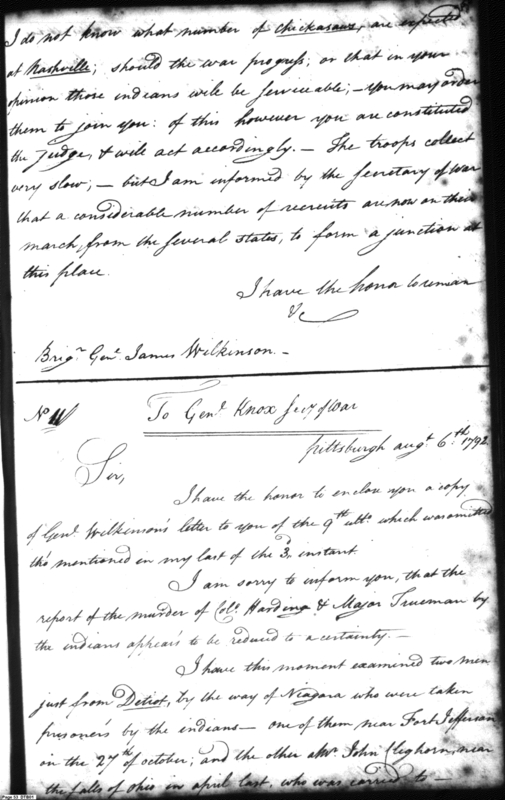 I do not know what number of Chickasaws, are expected
at Nashville; should the war progress; or that in your
opinion those indians will be serviceable; – you may order
them to join you: of this however you are constituted
the Judge, & will act accordingly. – The troops collect
very slow; – but I am informed by the Secretary of War
that a considerable number of recruits are now on their
march, from the several states, to form a junction at
this place.
I have the honor to remain
&c
Brigr. Genl. James Wilkinson. –
No. 11
To Genl. Knox Secy of War
Pittsburgh augt. 6.th 1792
Sir,
I have the honor to enclose you a copy
of Genl. Wilkinson's letter to you of the 9th ulto. which was omitted
tho' mentioned in my last of the 3d. instant.
I am sorry to inform you, that the
report of the murder of Colo. Harding & Major Trueman by
the indians appears to be reduced to a certainty. –
I have this moment examined two men
just from Detroit, by the way of Niagara who were taken
prisoners by the indians – one of them near Fort Jefferson
on the 27th of october; and the other a Mr. John Cleghorn, near
the falls of Ohio in april last, who was carried to –
Page 53